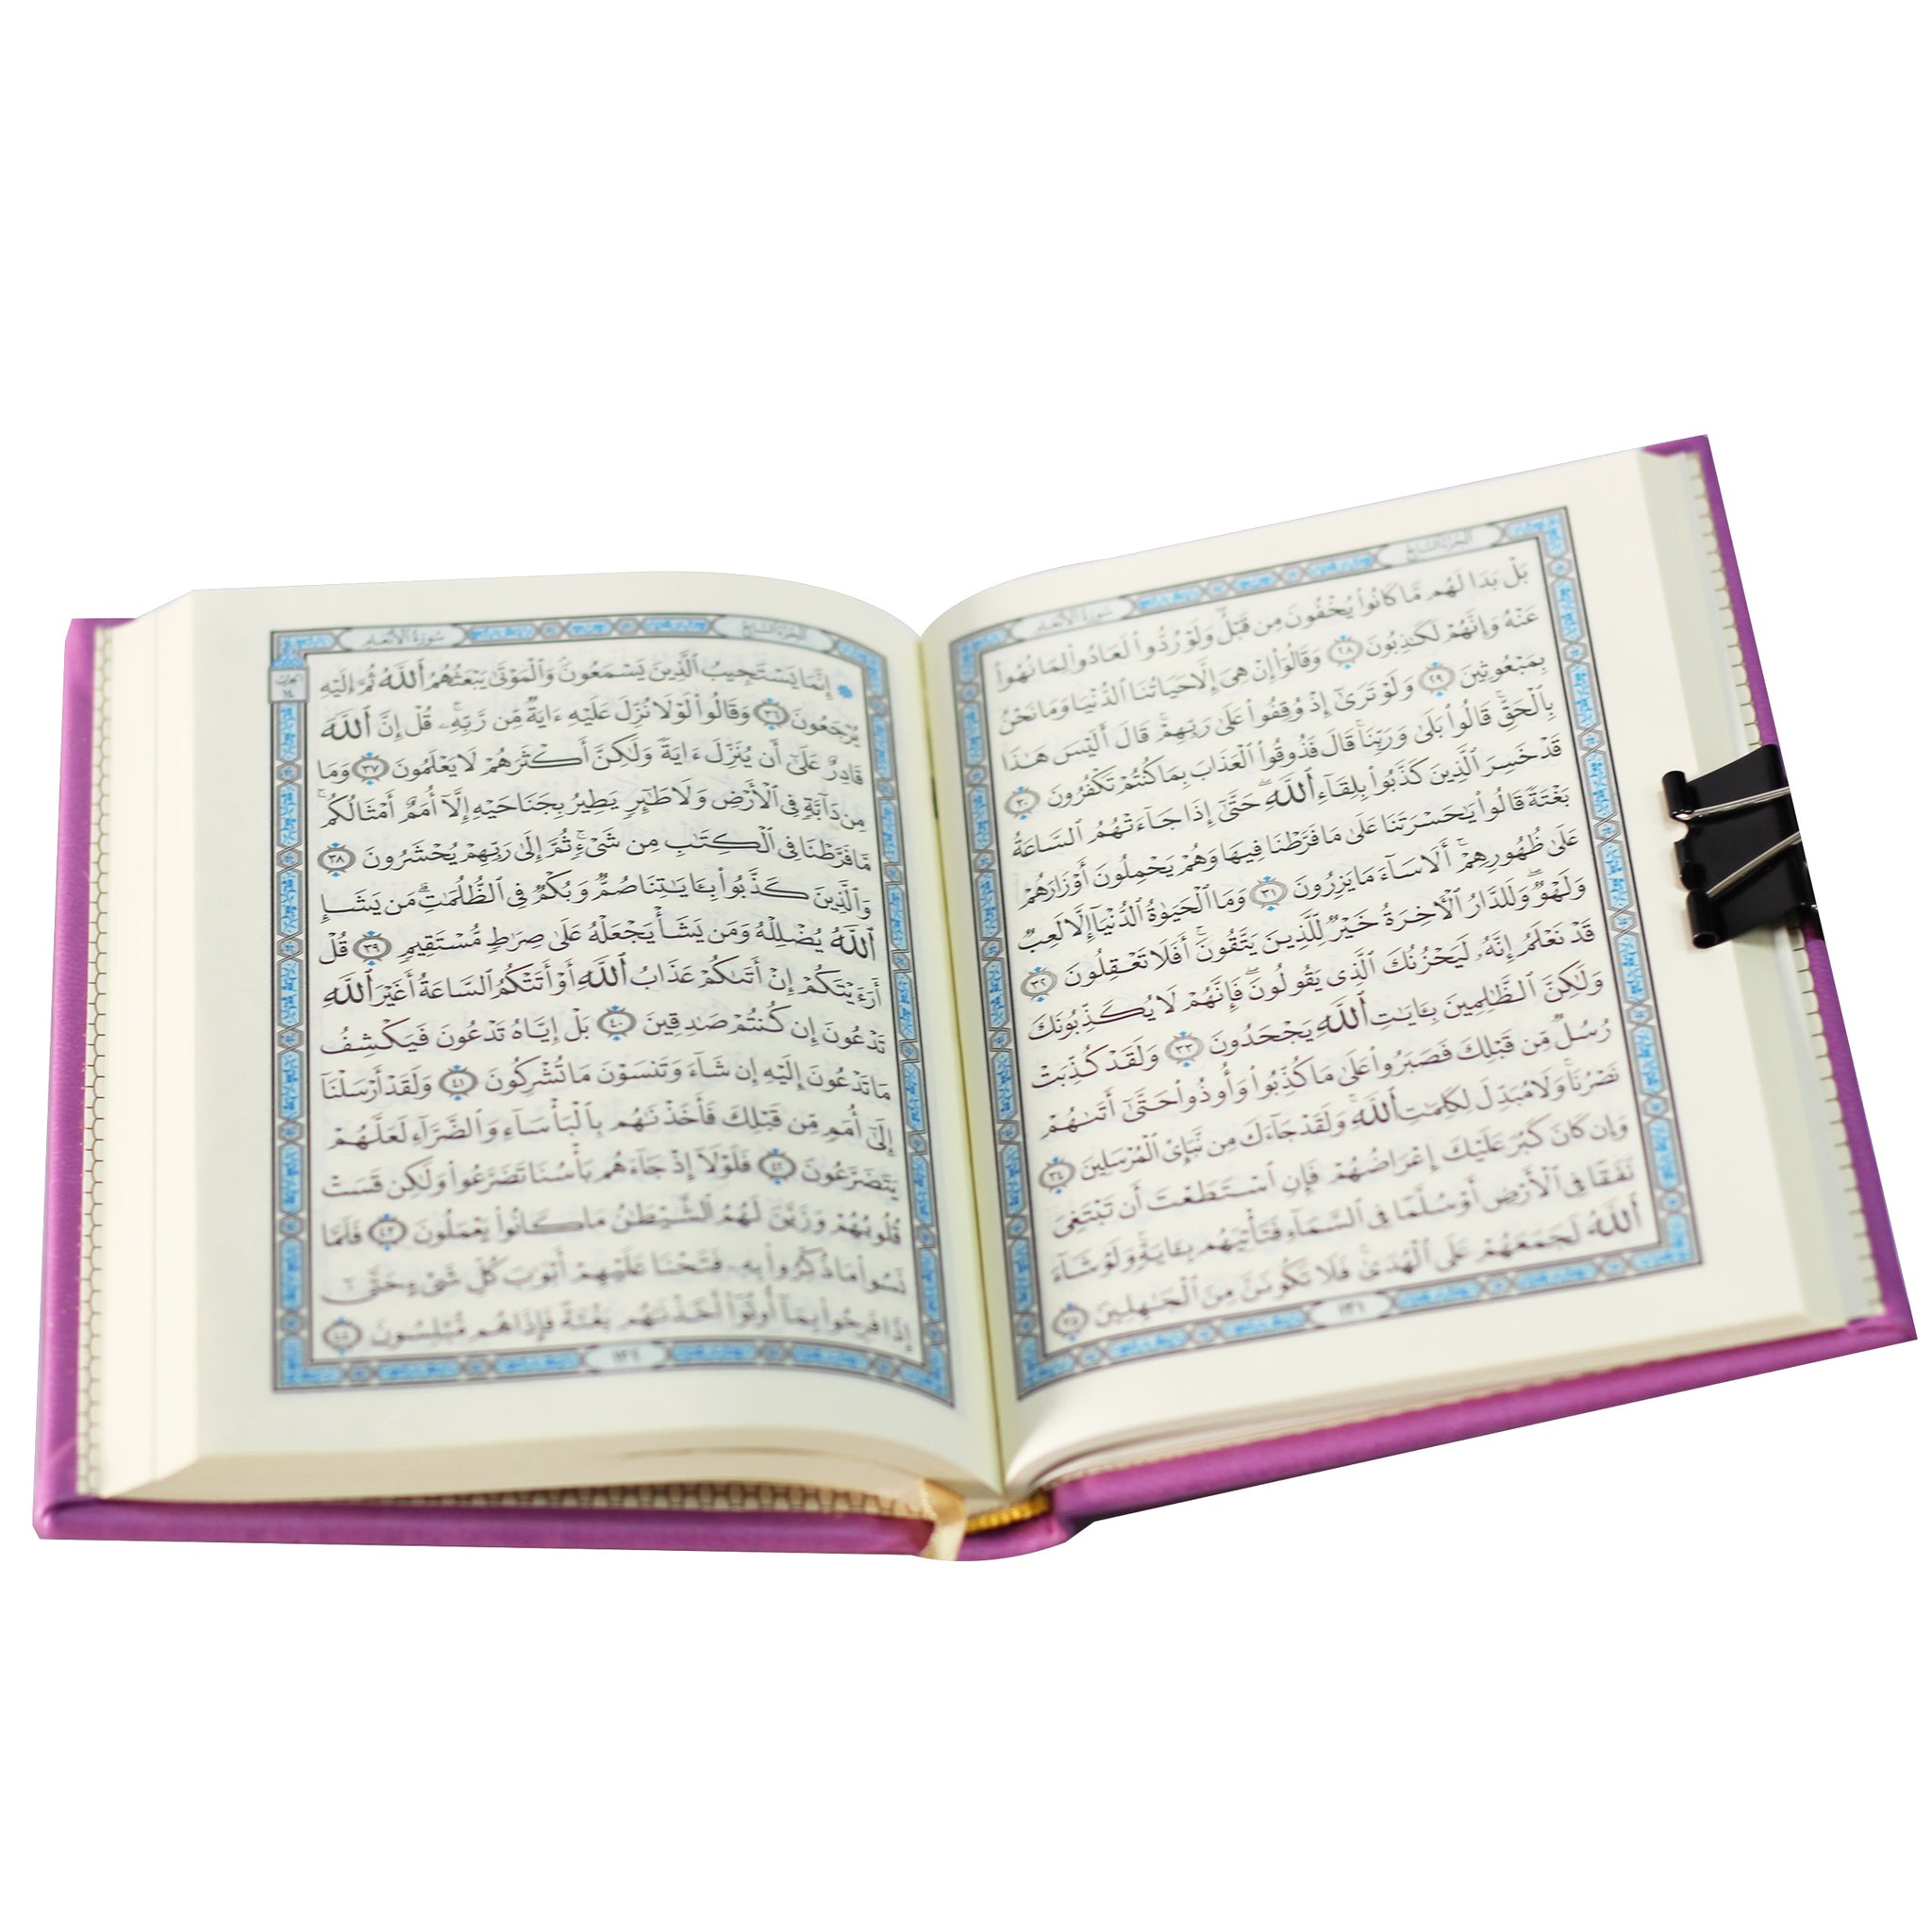 الجزء السابع
سورة الأنعام
بَلْ بَدَا لَهُم مَّا كَانُوا۟ يُخْفُونَ مِن قَبْلُ ۖ وَلَوْ رُدُّوا۟ لَعَادُوا۟ لِمَا نُهُوا۟
عَنْهُ وَإِنَّهُمْ لَكَـٰذِبُونَ ٢٨ وَقَالُوٓا۟ إِنْ هِىَ إِلَّا حَيَاتُنَا ٱلدُّنْيَا وَمَا نَحْنُ
بِمَبْعُوثِينَ ٢٩ وَلَوْ تَرَىٰٓ إِذْ وُقِفُوا۟ عَلَىٰ رَبِّهِمْ ۚ قَالَ أَلَيْسَ هَـٰذَا
بِٱلْحَقِّ ۚ قَالُوا۟ بَلَىٰ وَرَبِّنَا ۚ قَالَ فَذُوقُوا۟ ٱلْعَذَابَ بِمَا كُنتُمْ تَكْفُرُونَ ٣٠
قَدْ خَسِرَ ٱلَّذِينَ كَذَّبُوا۟ بِلِقَآءِ ٱللَّهِ ۖ حَتَّىٰٓ إِذَا جَآءَتْهُمُ ٱلسَّاعَةُ
بَغْتَةً قَالُوا۟ يَـٰحَسْرَتَنَا عَلَىٰ مَا فَرَّطْنَا فِيهَا وَهُمْ يَحْمِلُونَ أَوْزَارَهُمْ
عَلَىٰ ظُهُورِهِمْ ۚ أَلَا سَآءَ مَا يَزِرُونَ ٣١ وَمَا ٱلْحَيَوٰةُ ٱلدُّنْيَآ إِلَّا لَعِبٌ
وَلَهْوٌ ۖ وَلَلدَّارُ ٱلْـَٔاخِرَةُ خَيْرٌ لِّلَّذِينَ يَتَّقُونَ ۗ أَفَلَا تَعْقِلُونَ ٣٢
قَدْ نَعْلَمُ إِنَّهُۥ لَيَحْزُنُكَ ٱلَّذِى يَقُولُونَ ۖ فَإِنَّهُمْ لَا يُكَذِّبُونَكَ
وَلَـٰكِنَّ ٱلظَّـٰلِمِينَ بِـَٔايَـٰتِ ٱللَّهِ يَجْحَدُونَ ٣٣ وَلَقَدْ كُذِّبَتْ
رُسُلٌ مِّن قَبْلِكَ فَصَبَرُوا۟ عَلَىٰ مَا كُذِّبُوا۟ وَأُوذُوا۟ حَتَّىٰٓ أَتَىٰهُمْ
نَصْرُنَا ۚ وَلَا مُبَدِّلَ لِكَلِمَـٰتِ ٱللَّهِ ۚ وَلَقَدْ جَآءَكَ مِن نَّبَإِى۟ ٱلْمُرْسَلِينَ ٣٤
وَإِن كَانَ كَبُرَ عَلَيْكَ إِعْرَاضُهُمْ فَإِنِ ٱسْتَطَعْتَ أَن تَبْتَغِىَ
نَفَقًا فِى ٱلْأَرْضِ أَوْ سُلَّمًا فِى ٱلسَّمَآءِ فَتَأْتِيَهُم بِـَٔايَةٍ ۚ وَلَوْ شَآءَ
ٱللَّهُ لَجَمَعَهُمْ عَلَى ٱلْهُدَىٰ ۚ فَلَا تَكُونَنَّ مِنَ ٱلْجَـٰهِلِينَ ٣٥
١٣١
الجزء السابع
سورة الأنعام
إِنَّمَا يَسْتَجِيبُ ٱلَّذِينَ يَسْمَعُونَ ۘ وَٱلْمَوْتَىٰ يَبْعَثُهُمُ ٱللَّهُ ثُمَّ إِلَيْهِ
يُرْجَعُونَ ٣٦ وَقَالُوا۟ لَوْلَا نُزِّلَ عَلَيْهِ ءَايَةٌ مِّن رَّبِّهِۦ ۚ قُلْ إِنَّ ٱللَّهَ
قَادِرٌ عَلَىٰٓ أَن يُنَزِّلَ ءَايَةً وَلَـٰكِنَّ أَكْثَرَهُمْ لَا يَعْلَمُونَ ٣٧ وَمَا
مِن دَآبَّةٍ فِى ٱلْأَرْضِ وَلَا طَـٰٓئِرٍ يَطِيرُ بِجَنَاحَيْهِ إِلَّآ أُمَمٌ أَمْثَالُكُم ۚ
مَّا فَرَّطْنَا فِى ٱلْكِتَـٰبِ مِن شَىْءٍ ۚ ثُمَّ إِلَىٰ رَبِّهِمْ يُحْشَرُونَ ٣٨
وَٱلَّذِينَ كَذَّبُوا۟ بِـَٔايَـٰتِنَا صُمٌّ وَبُكْمٌ فِى ٱلظُّلُمَـٰتِ ۗ مَن يَشَإِ
ٱللَّهُ يُضْلِلْهُ وَمَن يَشَأْ يَجْعَلْهُ عَلَىٰ صِرَٰطٍ مُّسْتَقِيمٍ ٣٩ قُلْ
أَرَءَيْتَكُمْ إِنْ أَتَىٰكُمْ عَذَابُ ٱللَّهِ أَوْ أَتَتْكُمُ ٱلسَّاعَةُ أَغَيْرَ ٱللَّهِ
تَدْعُونَ إِن كُنتُمْ صَـٰدِقِينَ ٤٠ بَلْ إِيَّاهُ تَدْعُونَ فَيَكْشِفُ
مَا تَدْعُونَ إِلَيْهِ إِن شَآءَ وَتَنسَوْنَ مَا تُشْرِكُونَ ٤١ وَلَقَدْ أَرْسَلْنَآ
إِلَىٰٓ أُمَمٍ مِّن قَبْلِكَ فَأَخَذْنَـٰهُم بِٱلْبَأْسَآءِ وَٱلضَّرَّآءِ لَعَلَّهُمْ
يَتَضَرَّعُونَ ٤٢ فَلَوْلَآ إِذْ جَآءَهُم بَأْسُنَا تَضَرَّعُوا۟ وَلَـٰكِن قَسَتْ
قُلُوبُهُمْ وَزَيَّنَ لَهُمُ ٱلشَّيْطَـٰنُ مَا كَانُوا۟ يَعْمَلُونَ ٤٣ فَلَمَّا
نَسُوا۟ مَا ذُكِّرُوا۟ بِهِۦ فَتَحْنَا عَلَيْهِمْ أَبْوَٰبَ كُلِّ شَىْءٍ حَتَّىٰٓ
إِذَا فَرِحُوا۟ بِمَآ أُوتُوٓا۟ أَخَذْنَـٰهُم بَغْتَةً فَإِذَا هُم مُّبْلِسُونَ ٤٤